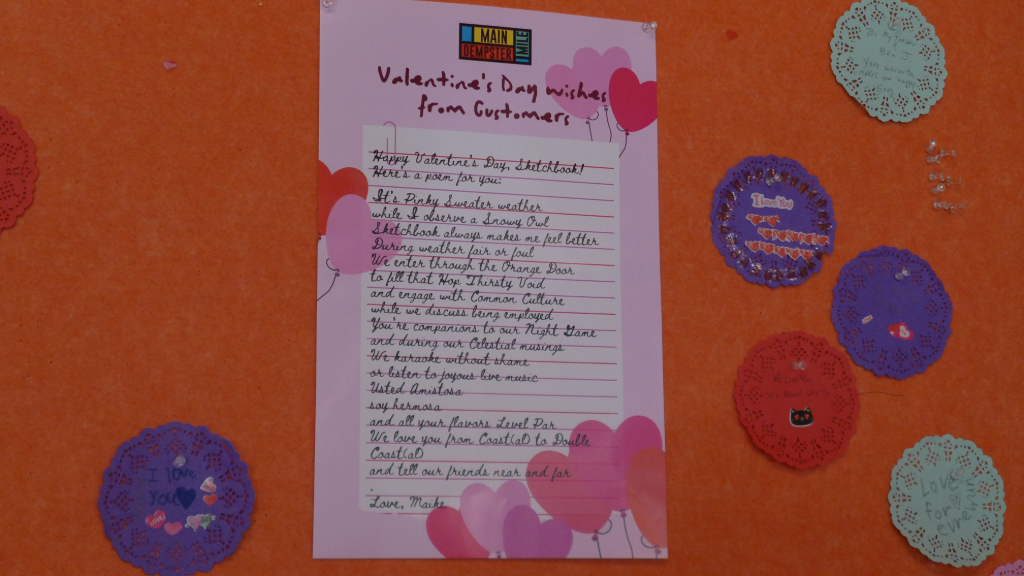 MAIN
DEMPSTER
MILE
Valentine's Day wishes
from Customers
Happy Valentine's Day, Sketchbook!
Here's a poem for you:
It's Pinky Sweater weather
while I observe a Snowy Owl
Sketchbook always makes me feel better
During weather fair or foul
We enter through the Orange Door
to fill that Hop Thirsty Void
and engage with Common Culture
while we discuss being employed
You're companions to our Night Game
and during our Celestial musings
We karaoke without shame
or listen to joyous live music
Usted Amistosa
soy hermosa
and all your flavors Level Par
We love you from Coast(al) to Double
Coast(al)
and tell our friends near and far
.
Love, Maike
I love
you
LOVE
I Love You
Love
for
evre